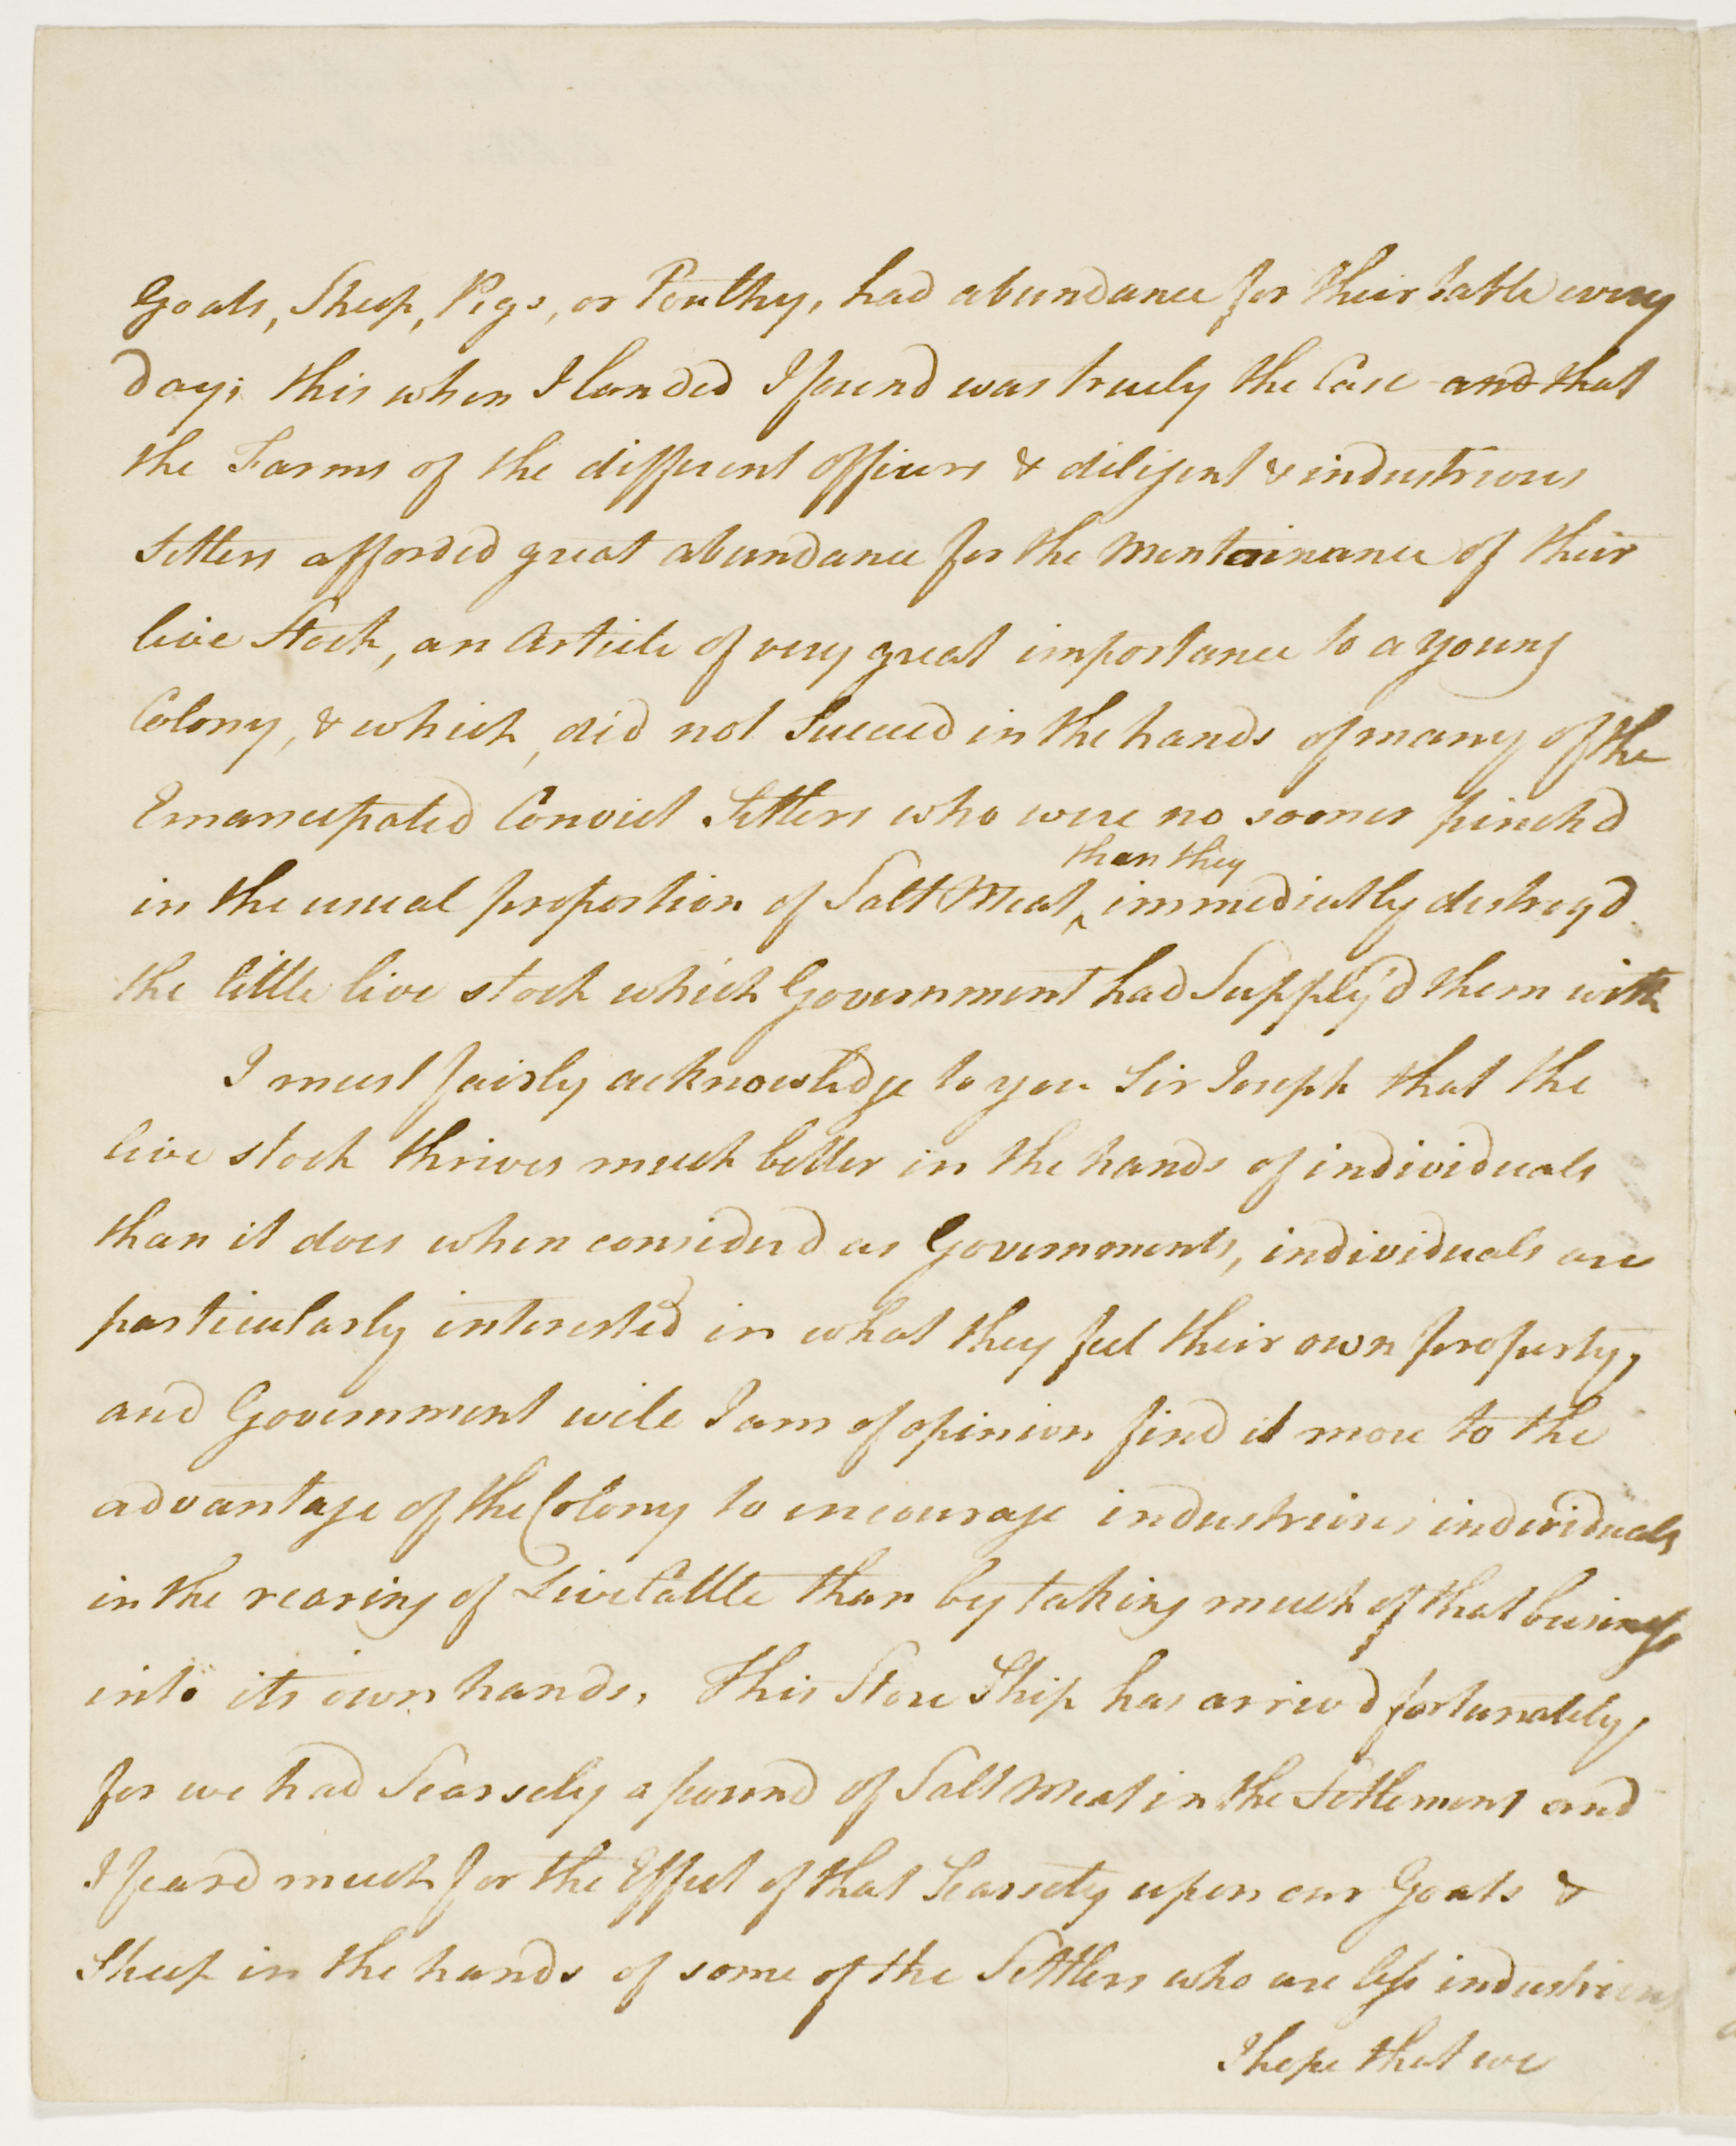 Goats, Sheep, Pigs, or Poulthy, had abundance for their table every
day; this when I landed I found was truely the Case and that
the Farms of the different officers & diligent & industrious
Settlers afforded great abundance for the Mentainance of their
live Stock, an Article of very great importance to a young
Colony, & which, did not Succeed in the hands of many of the
Emancipated Convict Settlers who were no sooner pinch'd
than they
in the usual proportion of Salt Meat ^ immediatly destroy'd
the little live stock which Government had Supply'd them with
I must fairly acknowledge to you Sir Joseph that the
live stock thrives much better in the hands of individuals
than it does when considerd as Governments, individuals are
particularly interested in what they feel their own property,
and Government will I am of opinion find it more to the
advantage of the Colony to encourage industrious individuals
in the rearing of Live Cattle than by taking much of that business
into its own hands. This Store Ship has arriv'd fortunately,
for we had Scarsely a pound of Salt Meat in the Settlement and
I feard much for the Effect of that Scarsety upon our Goats &
Sheep in the hands of some of the Settlers who are less industrious
I hope that we